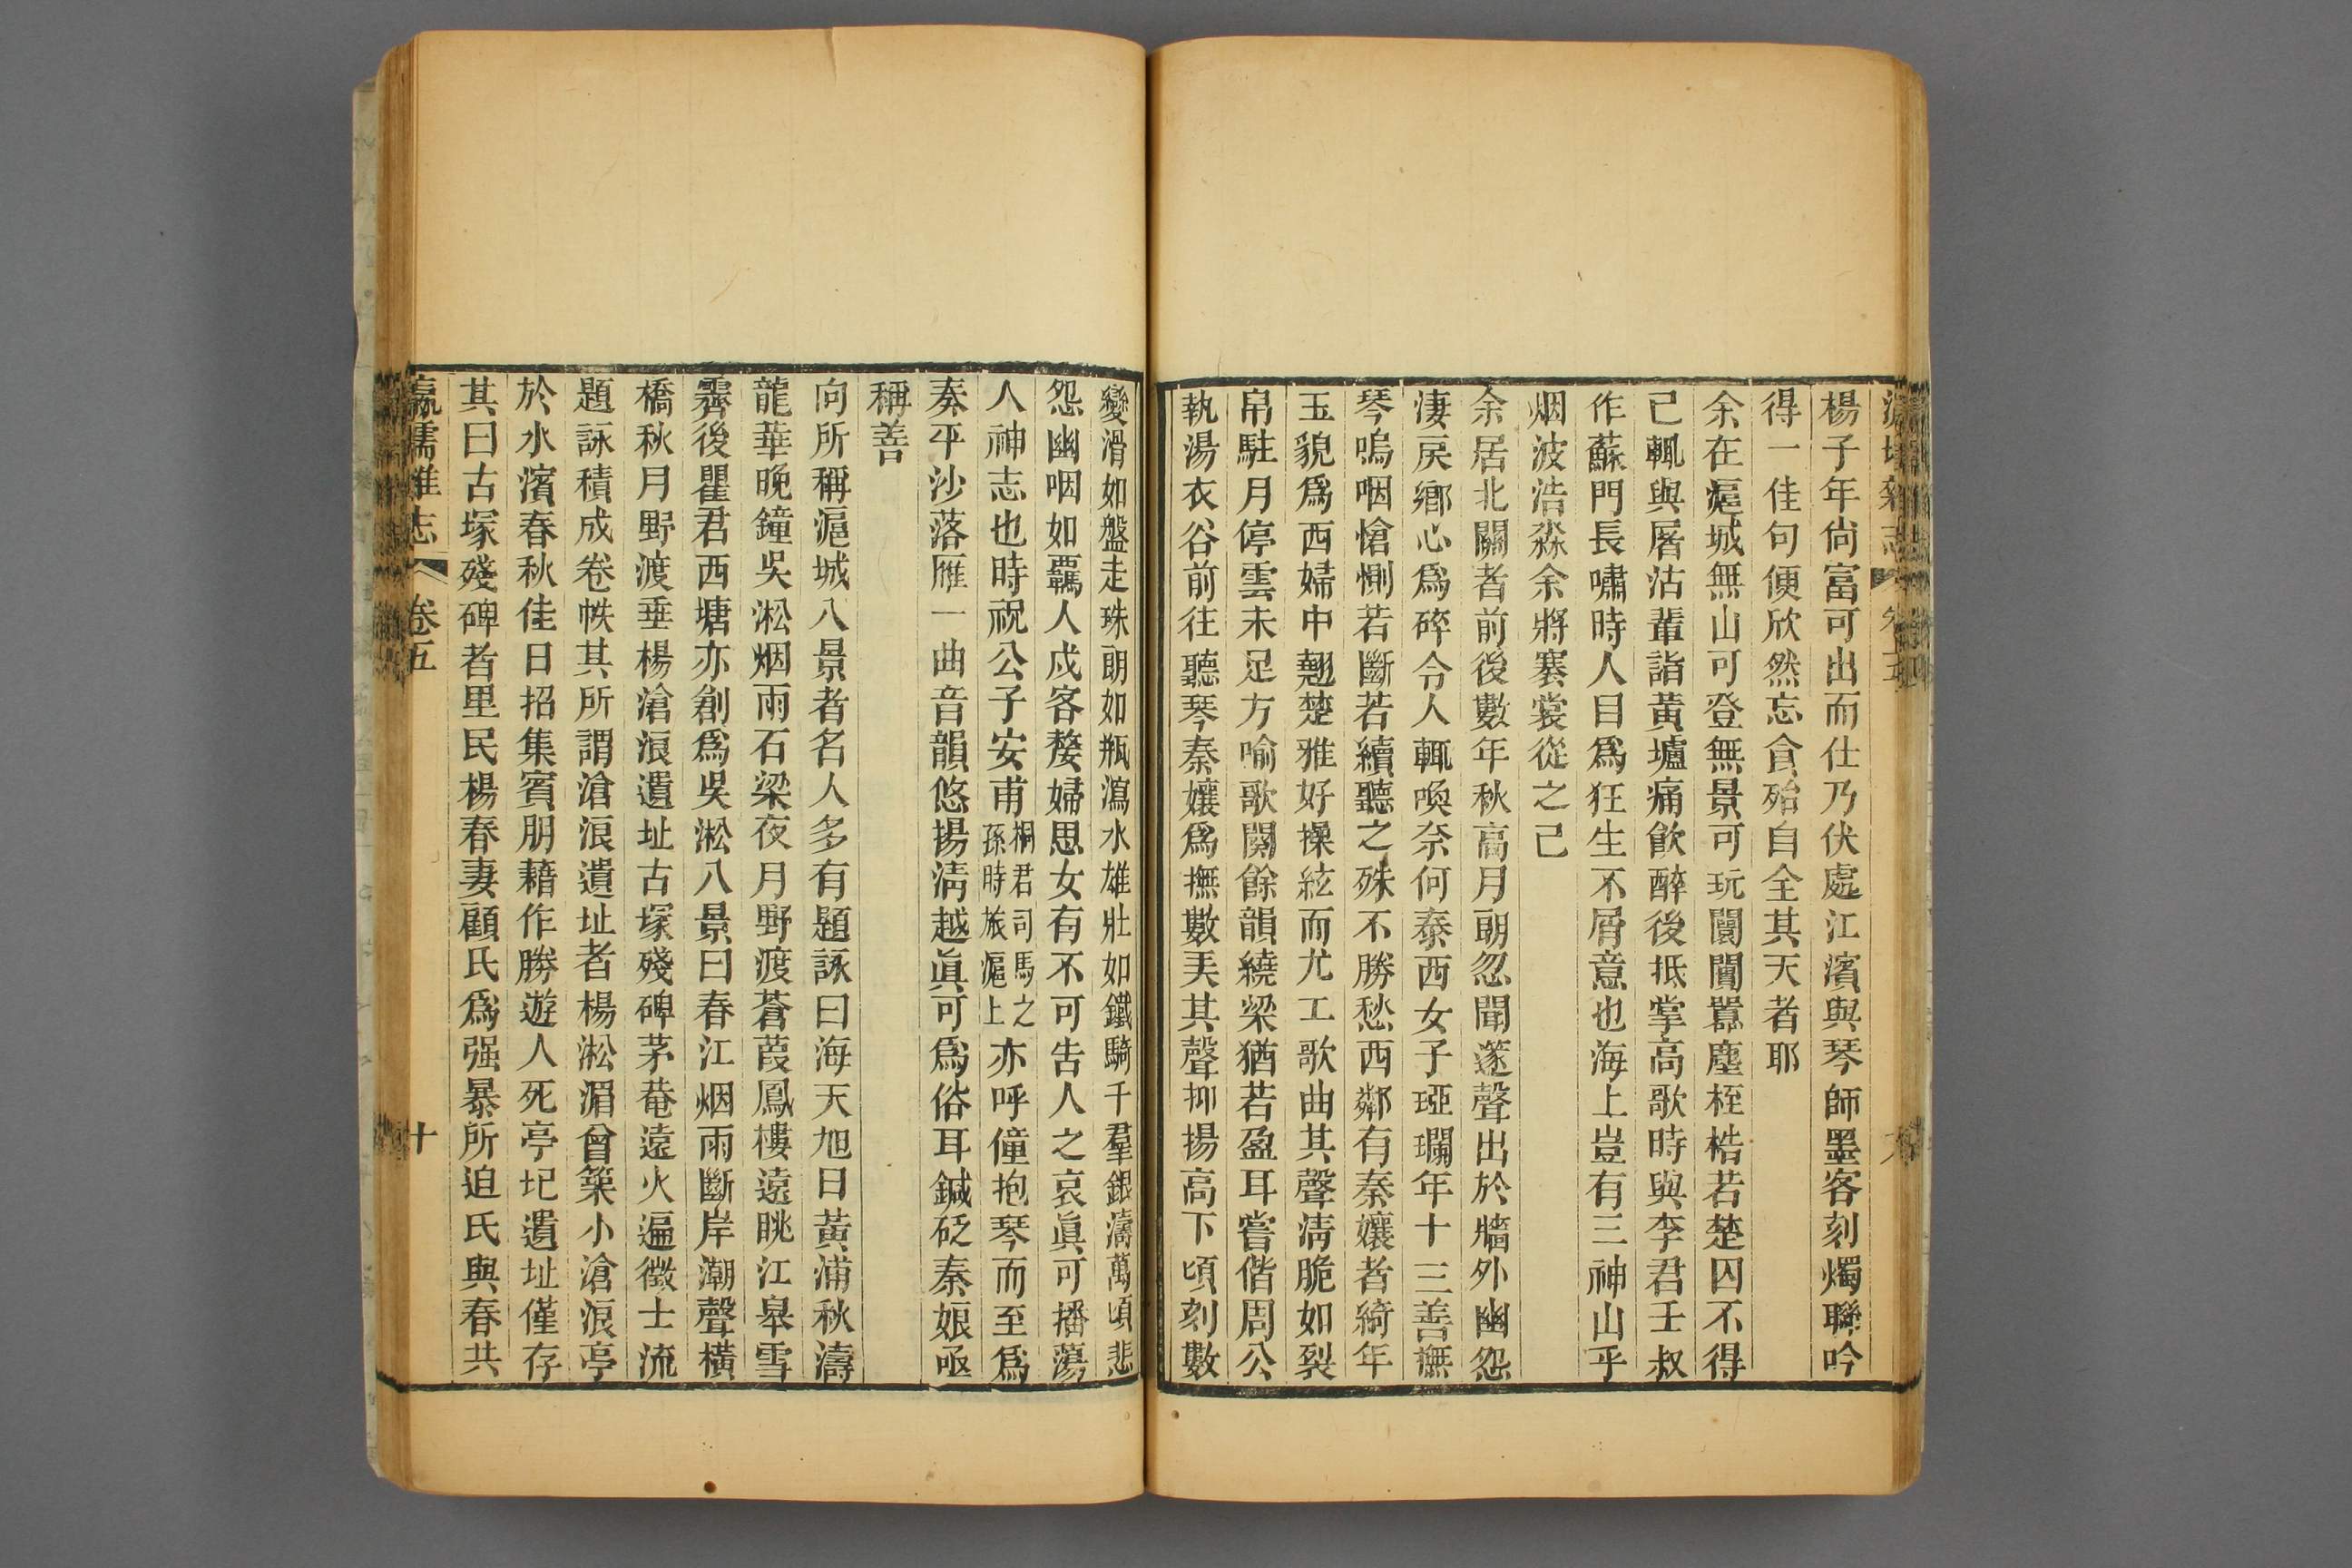 楊子年尙富可出而仕乃伏處江濱與琴師墨客刻燭聯吟
得一佳句便欣然忘食殆自全其天者耶
余在滬城無山可登無景可玩闤闠囂塵桎梏若楚囚不得
已輒與屠沽輩詣黃壚痛飮醉後抵掌高歌時與李君壬叔
作蘇門長嘯時人目爲狂生不屑意也海上豈有三神山乎
烟波浩淼余將褰裳從之已
余居北關者前後數年秋高月朗忽聞邃聲出於牆外幽怨
淒戾鄕心爲碎令人輒喚奈何泰西女子瑿瓓年十三善撫
琴嗚咽愴惻若斷若續聽之殊不勝愁西鄰有秦孃者綺年
玉貌爲西婦中翹楚雅好操絃而尤工歌曲其聲淸脆如裂
帛駐月停雲未足方喻歌闋餘韻繞梁猶若盈耳嘗偕周公
執湯衣谷前往聽琴秦孃爲撫數弄其聲抑揚高下頃刻數
變滑如盤走珠朗如瓶瀉水雄壯如鐵騎千羣銀濤萬頃悲
怨幽咽如覊人戍客嫠婦思女有不可吿人之哀眞可播蕩
人神志也時祝公子安甫桐君司馬之孫時旅滬上亦呼僮抱琴而至爲
奏平沙落雁一曲音韻悠揚淸越眞可爲俗耳鍼砭秦娘亟
稱善
向所稱滬城八景者名人多有題詠曰海天旭日黃浦秋濤
龍華晚鐘吳淞烟雨石梁夜月野渡蒼葭鳳樓遠眺江皋雪
霽後瞿君西塘亦創爲吳淞八景曰春江烟雨斷岸潮聲橫
橋秋月野渡垂楊滄浪遺址古塚殘碑茅菴遠火遍徵士流
題詠積成卷帙其所謂滄浪遺址者楊淞湄曾築小滄浪亭
於水濱春秋佳日招集賓朋藉作勝遊人死亭圮遺址僅存
其曰古塚殘碑者里民楊春妻顧氏爲强暴所迫氏與春共
瀛壖雜志 卷五 十